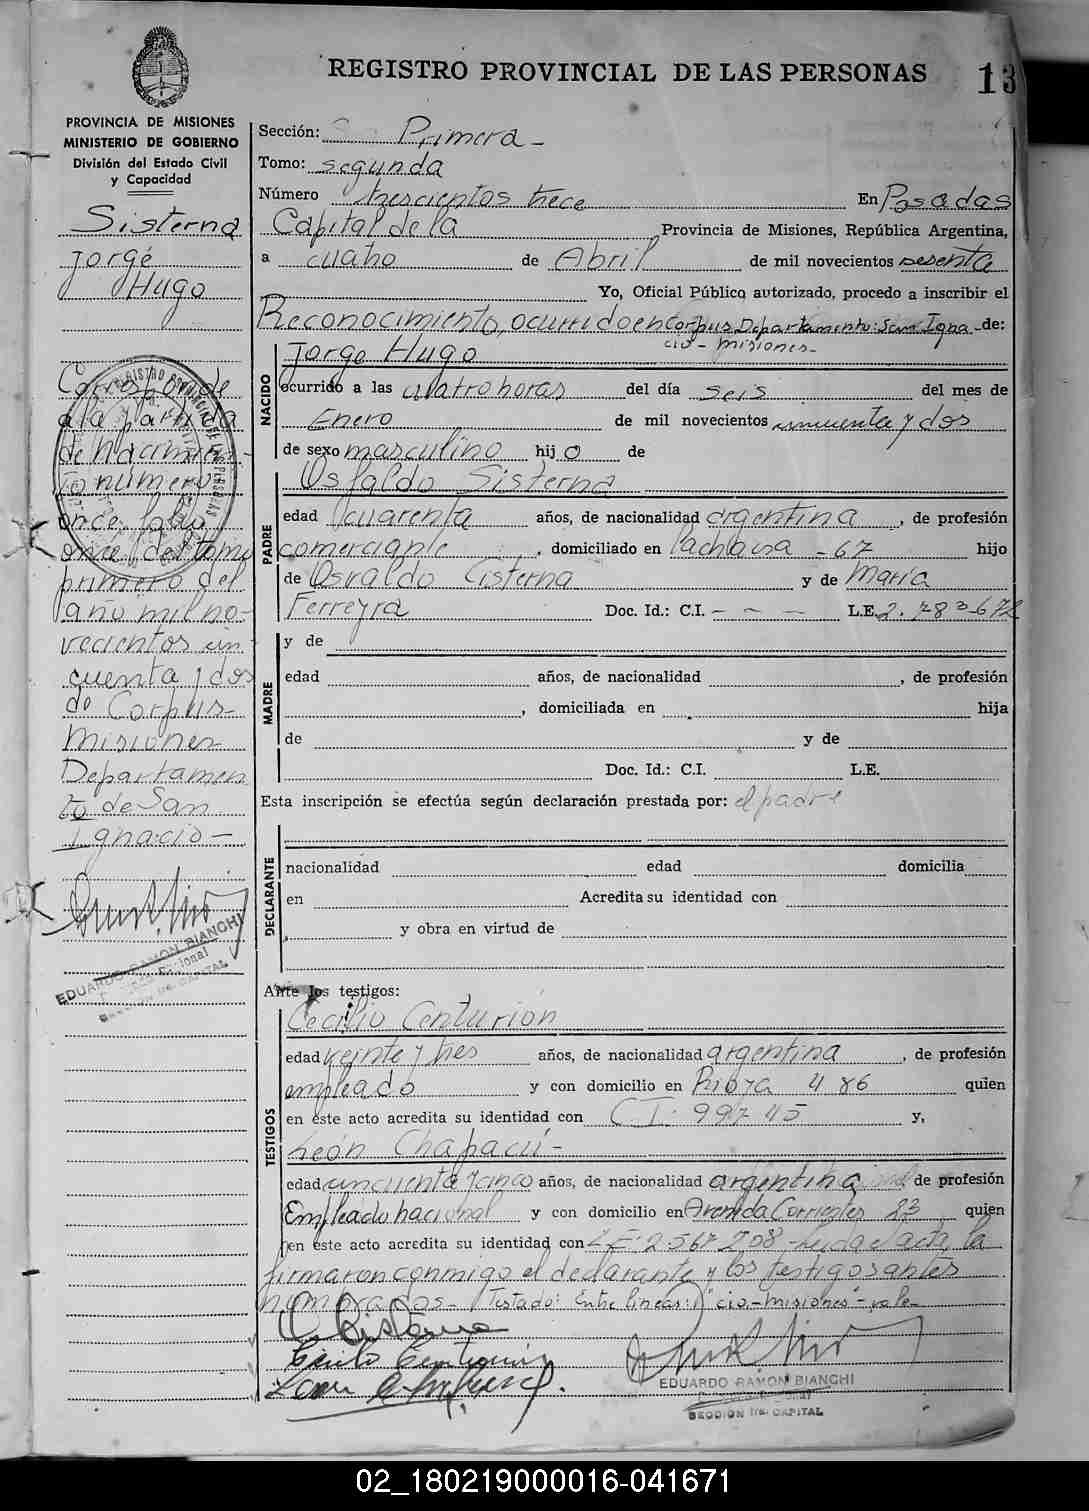 REGISTRO PROVINCIAL DE LAS PERSONAS 13
PROVINCIA DE MISIONES
MINISTERIO DE GOBIERNO
División del Estado Civil
y Capacidad
Sisterna
Jorge
Hugo
Corresponde
a la partida
de nacimien-
to número
once folio
once del tomo
primero del
año mil no-
vecientos cin
cuenta y dos
de Corpus-
Misiones
Departamen
to de San
Ignacio-
EDUARDO RAMON BIANCHI
Sección: Primera-
Tomo: segunda
Número trescientos trece En Posadas
Capital de la Provincia de Misiones, República Argentina,
a cuatro de Abril de mil novecientos sesenta
Yo, Oficial Público autorizado, procedo a inscribir el
Reconocimiento, ocurrido en Corpus Departamento: San Igna - de:
cio - misiones-
NACIDO
Jorge Hugo
ocurrido a las cuatro horas del día seis del mes de
Enero de mil novecientos cincuenta y dos
de sexo masculino hijo de
PADRE
Osfaldo Sisterna
edad cuarenta años, de nacionalidad argentina, de profesión
comerciante, domiciliado en Lachausa - 67 hijo
de Osvaldo Cisterna y de María
Ferreyra Doc. Id.: C.I. - - - L.E. 2.783-672
MADRE
y de
edad años, de nacionalidad , de profesión
, domiciliada en hija
de y de
Doc. Id.: C.I. L.E.
Esta inscripción se efectúa según declaración prestada por: el padre
DECLARANTE
nacionalidad edad domicilia
en Acredita su identidad con
y obra en virtud de
Ante los testigos:
TESTIGOS
Cecilio Centurión
edad veinte y tres años, de nacionalidad argentina, de profesión
empleado y con domicilio en Rioja 486 quien
en este acto acredita su identidad con C I: 997 45 y,
León Chapacú-
edad cincuenta y cinco años, de nacionalidad argentina de profesión
Empleado nacional y con domicilio en Avenida Corrientes 23 quien
en este acto acredita su identidad con L E: 2.567 208 - Leida el acta, la
firmaron conmigo el declarante y los testigos antes
nombrados- Testado: Entre lineas: "cio.-misiones"- vale-
EDUARDO RAMON BIANCHI
SECCION 1ra. CAPITAL
02_180219000016-041671